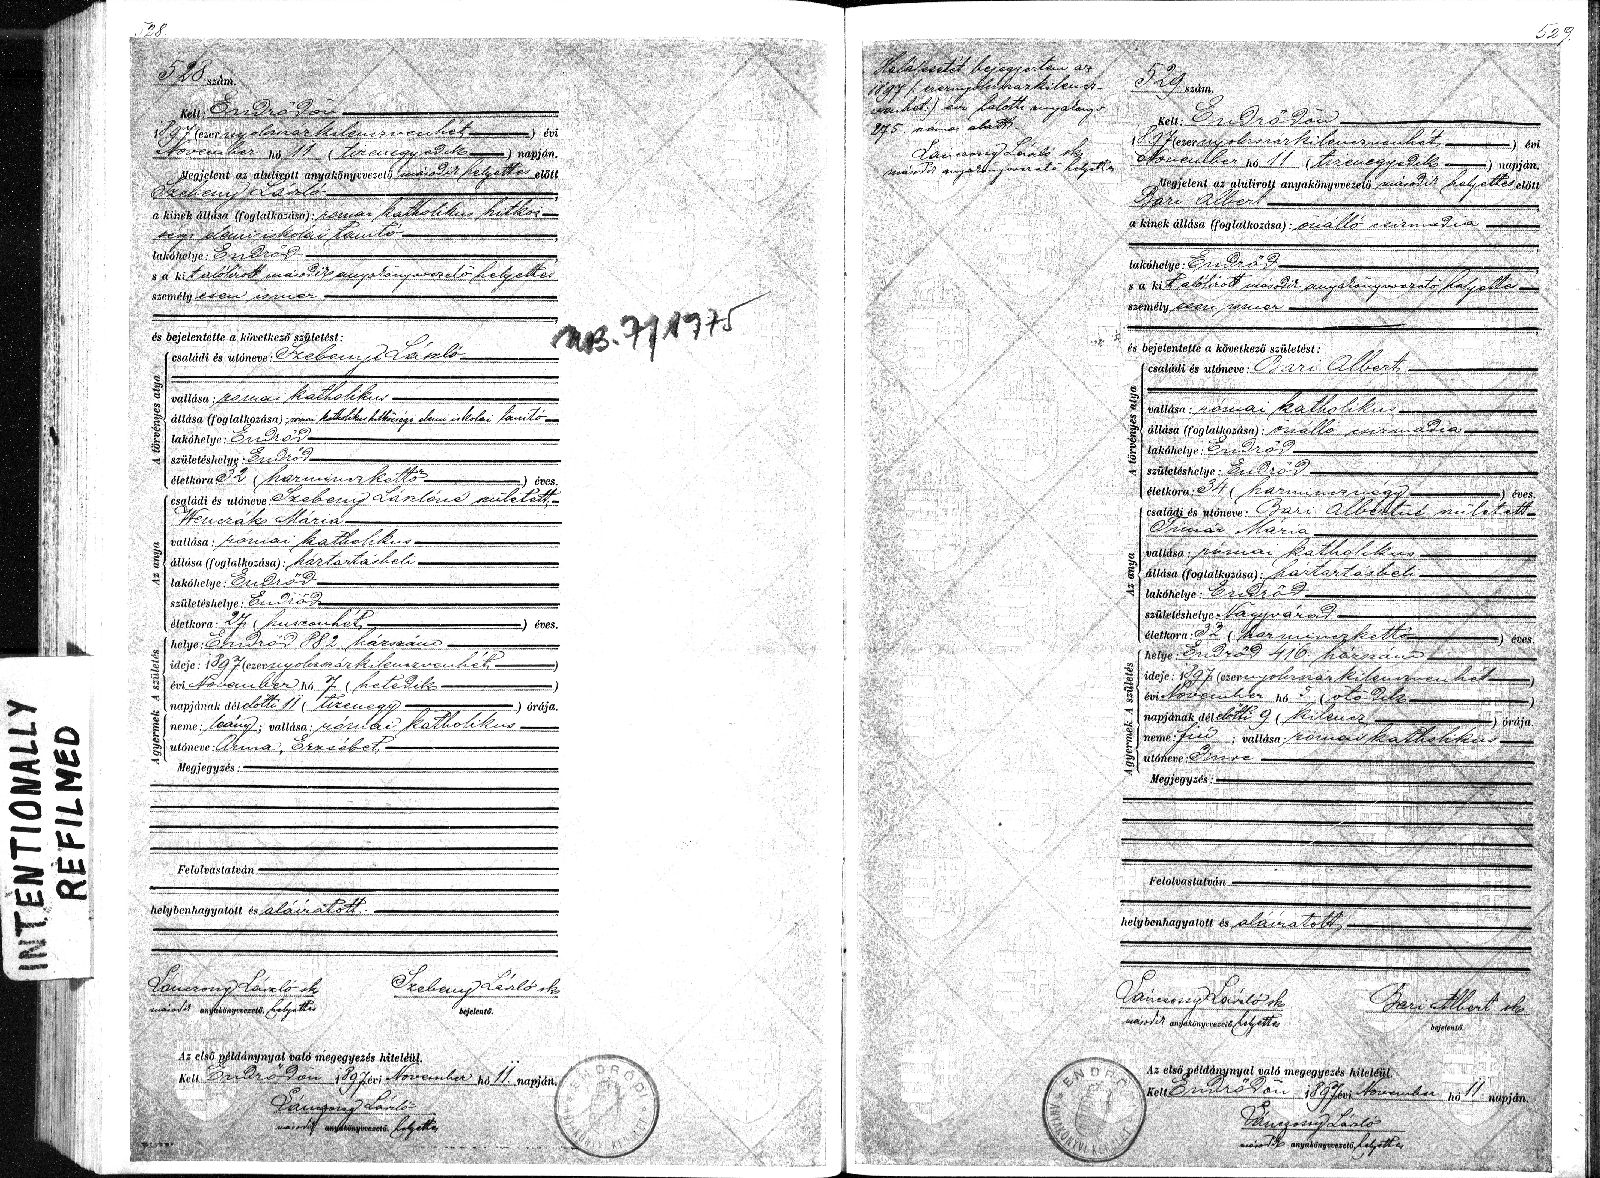 528.
528 szám.
Kelt: Endrődön
1897 (ezernyolcszázkilencvenhét) évi
November hó 11 (tizenegyedik) napján.
Megjelent az alulirott anyakönyvezető második helyettes előtt
Szebeny László
a kinek állása (foglalkozása): római katholikus hitköz-
ségi elemi iskolai tanító
lakóhelye: Endrőd
s a kit alólirott második anyakönyvvezető helyettes
személyesen ismer
és bejelentette a következő születést:
A törvényes atya
családi és utóneve: Szebeny László
vallása: római katholikus
állása (foglalkozása): római katholikus hitközségi elemi iskolai tanító
lakóhelye: Endrőd
születéshelye: Endrőd
életkora: 32 (harminczkettő) éves.
Az anya
családi és utóneve: Szebeny Lászlóné született
Mária
vallása: római katholikus
állása (foglalkozása): háztartásbeli
lakóhelye: Endrőd
születéshelye: Endrőd
életkora: 27 (huszonhét) éves.
A születés
helye: Endrőd 882 házszám
ideje: 1897 (ezernyolcszázkilencvenhét)
évi November hó 7 (hetedik)
napjának délelőtti 11 (tizenegy) órája.
A gyermek
neme: leány; vallása: római katholikus
utóneve: Anna, Erzsébet
Megjegyzés:
Felolvastatván
helybenhagyatott és aláiratott.
László sk
második anyakönyvvezető helyettes
Szebeny László sk
bejelentő.
Az első példánynyal való megegyezés hiteléül.
Kelt Endrődön 1897 évi November hó 11 napján.
László
második anyakönyvvezető helyettes
ENDRŐDI
7/1975
INTENTIONALLY
REFILMED
529.
Halálesetét bejegyeztem az
1897 (ezernyolcszázkilencz-
venhét) évi halotti anyakönyv
275 szám alatt.
László sk
második anyakönyvvezető helyettes
529 szám.
Kelt: Endrődön
1897 (ezernyolcszázkilencvenhét) évi
November hó 11 (tizenegyedik) napján.
Megjelent az alulirott anyakönyvezető második helyettes előtt
Bari Albert
a kinek állása (foglalkozása): önálló csizmadia
lakóhelye: Endrőd
s a kit alólirott második anyakönyvvezető helyettes
személyesen ismer
és bejelentette a következő születést:
A törvényes atya
családi és utóneve: Bari Albert
vallása: római katholikus
állása (foglalkozása): önálló csizmadia
lakóhelye: Endrőd
születéshelye: Endrőd
életkora: 34 (harmincznégy) éves.
Az anya
családi és utóneve: Bari Albertné született
Mária
vallása: római katholikus
állása (foglalkozása): háztartásbeli
lakóhelye: Endrőd
születéshelye: Nagyvárad
életkora: 32 (harminczkettő) éves.
A születés
helye: Endrőd 416 házszám
ideje: 1897 (ezernyolcszázkilencvenhét)
évi November hó 5 (ötödik)
napjának délelőtti 9 (kilencz) órája.
A gyermek
neme: fiú; vallása: római katholikus
utóneve: Imre
Megjegyzés:
Felolvastatván
helybenhagyatott és aláiratott
László sk
második anyakönyvvezető helyettes
Bari Albert sk
bejelentő.
Az első példánynyal való megegyezés hiteléül.
Kelt Endrődön 1897 évi November hó 11 napján.
László
második anyakönyvvezető helyettes
ENDRŐDI